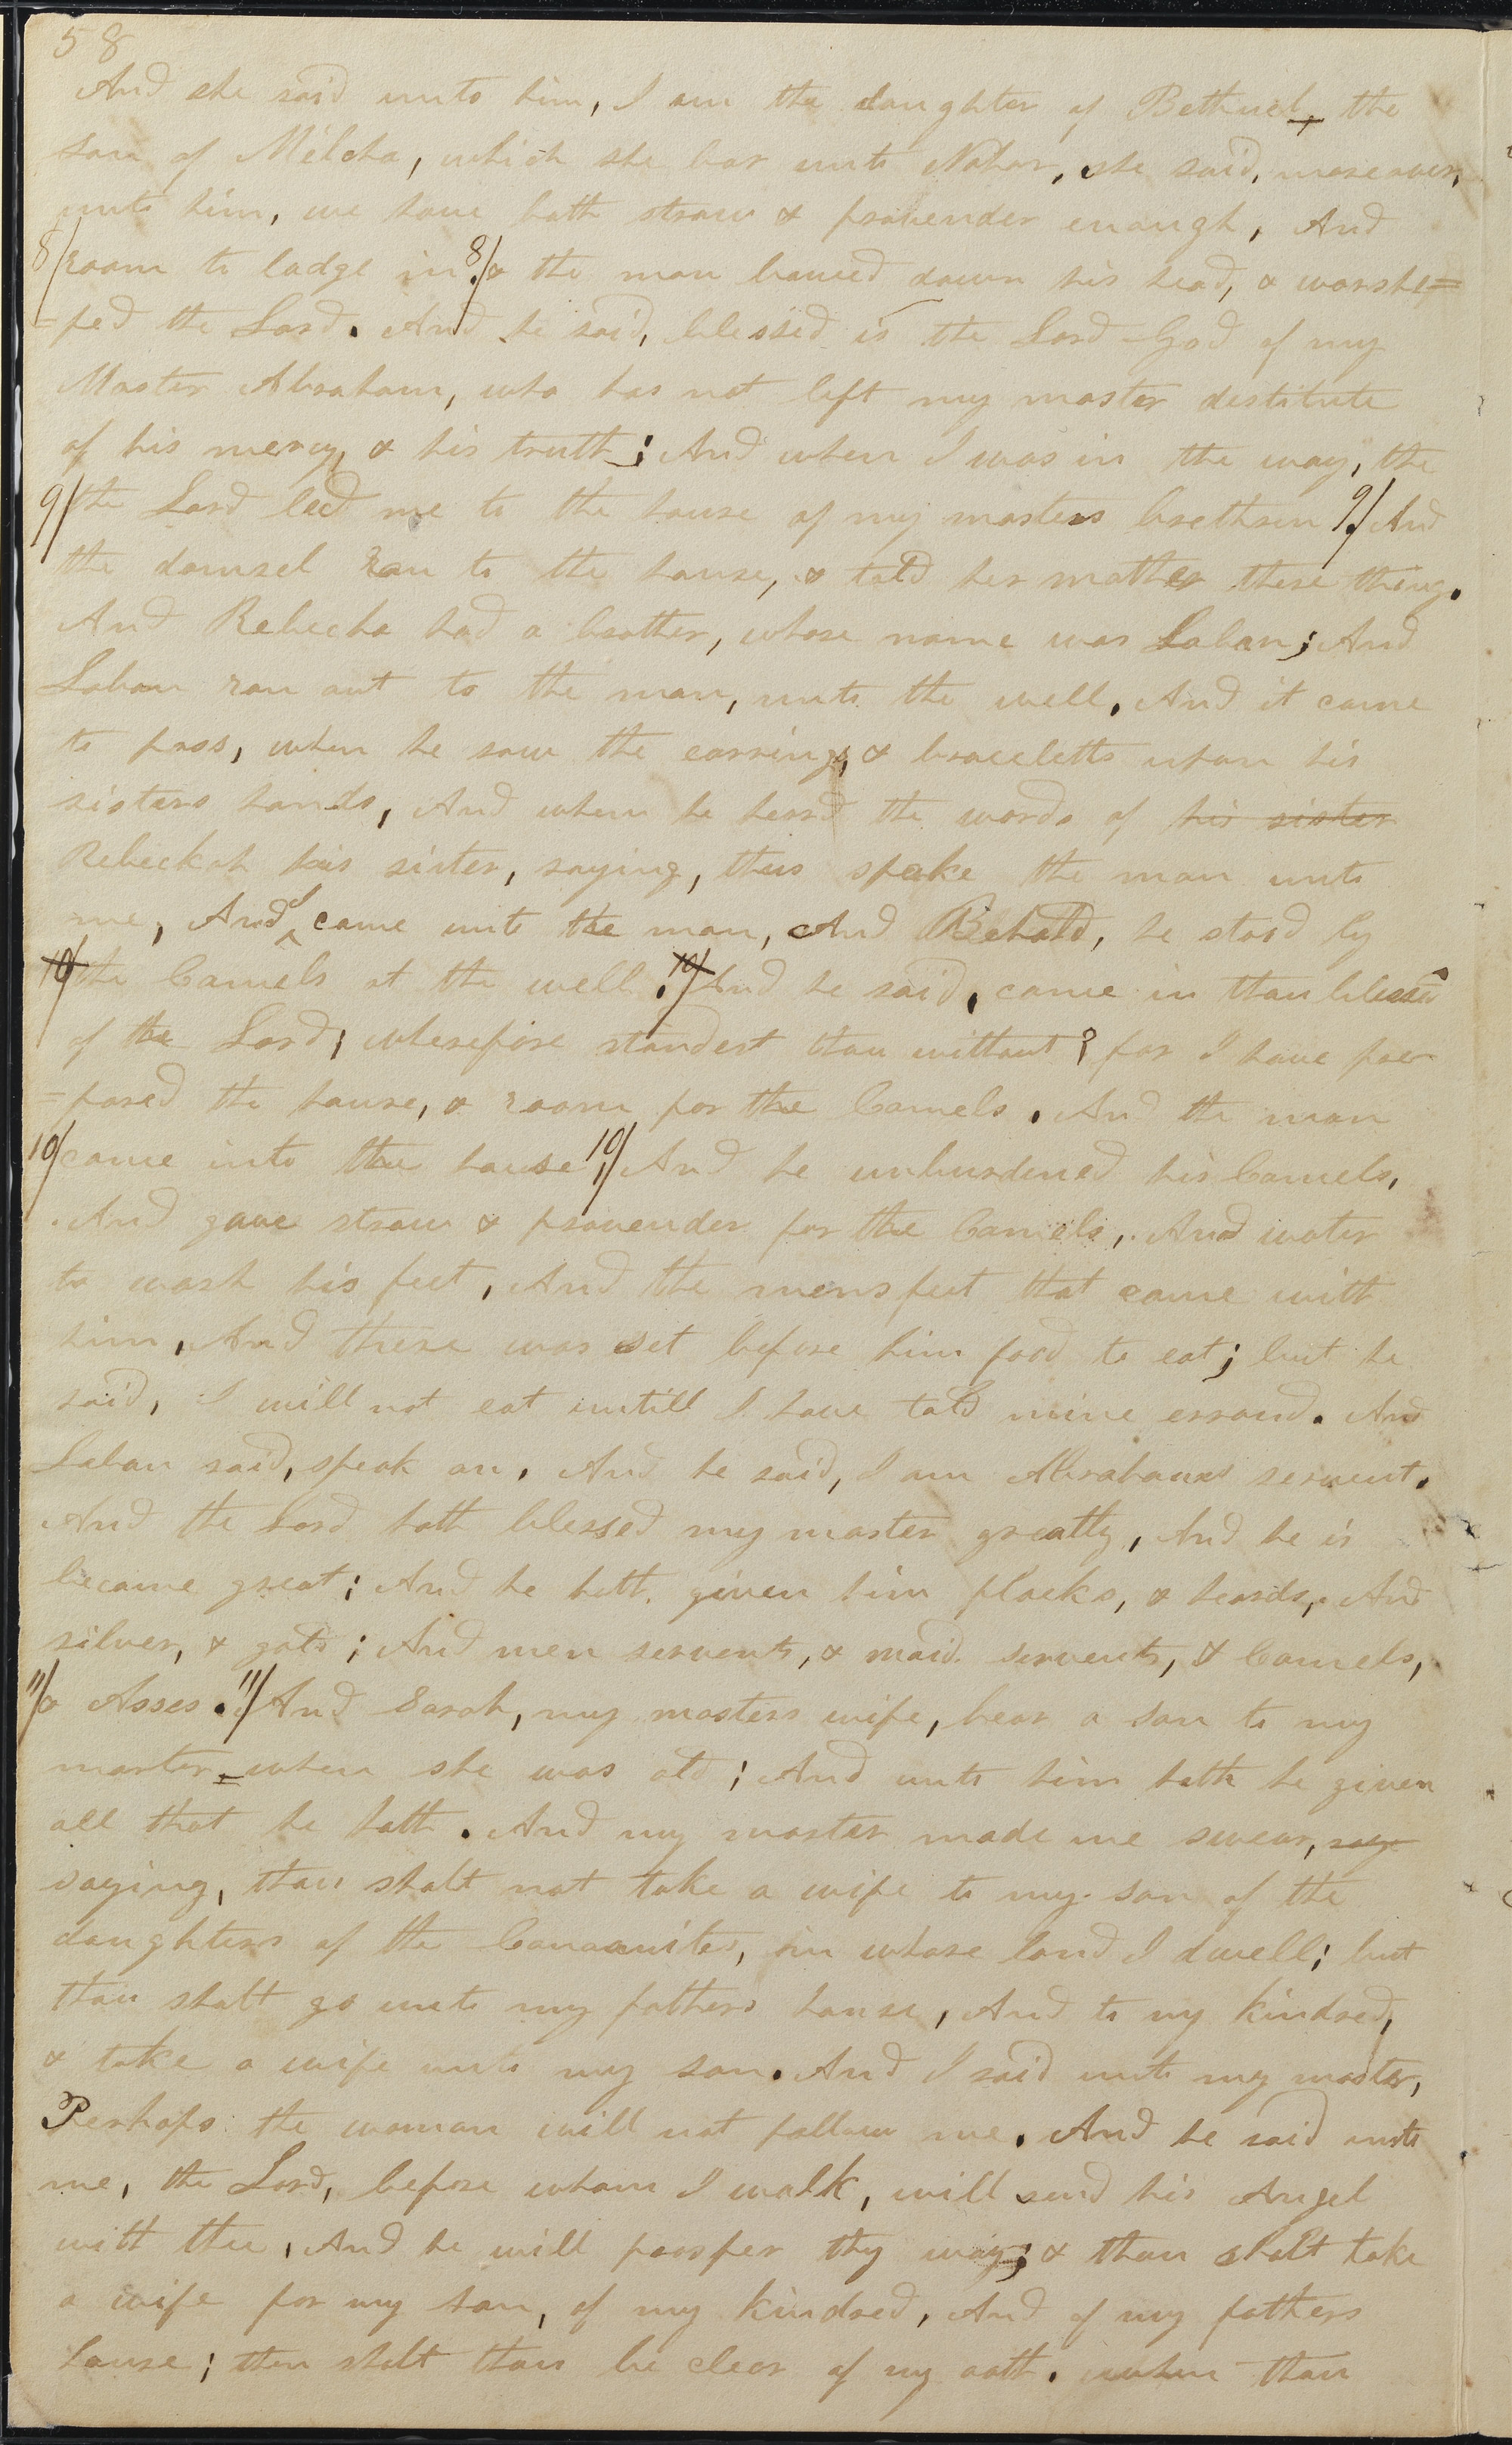 58
And she said unto him, I am the daughter of Bethuel, the
son of Milcha, which she bar unto Nahor, she said, moreover,
unto him, we have both straw & provender enough, And
8/ room to lodge in 8/. & the man bowed down his head, & worshi=
=ped the Lord. And he said, blessed is the Lord God of my
Master Abraham, who has not left my master destitute
of his mercy, & his truth; And when I was in the way, the
9/ the Lord led me to the house of my masters brethren 9/. And
the damsel ran to the house, & told her mother these thing.
And Rebecha had a brother, whose name was Laban; And
Laban ran out to the man, unto the well. And it came
to pass, when he saw the earrings, & braceletts upon his
sisters hands, And when he heard the words of his sister
Rebeckah his sister, saying, thus spake the man unto
me, And I came unto the man, And Behold, he stood by
10/ the Camels at the well. 10/ And he said, come in thou blessed
of the Lord; wherefore standest thou without? for I have pre
=pared the house, & room for the Camels. And the man
10/ came into the house, 10/ And he unburdened his Camels,
And gave straw & provender for the Camels, And water
to wash his feet, And the mens feet that came with
him, And there was set before him food to eat; but he
said, I will not eat untill I have told mine errand. And
Laban said, speak on. And he said, I am Abrahams servent.
And the Lord hath blessed my master greatly, And he is
become great; And he hath given him flocks, & heards, And
silver, & gold; And men servents, & maid servents, & Camels,
11/ & Asses. 11/ And Sarah, my masters wife, bear a son to my
master when she was old; And unto him hath he given
all that he hath. And my master made me swear, say
saying, thou shalt not take a wife to my son of the
daughters of the Canaanites, in whose land I dwell; but
thou shalt go unto my fathers house, And to my kindred,
& take a wife unto my son. And I said unto my master,
Perhaps the woman will not follow me. And he said unto
me, the Lord, before whom I walk, will send his Angel
with thee, And he will prosper thy way; & thou shalt take
a wife for my son, of my kindred, And of my fathers
house; then shalt thou be clear of my oath. when thou